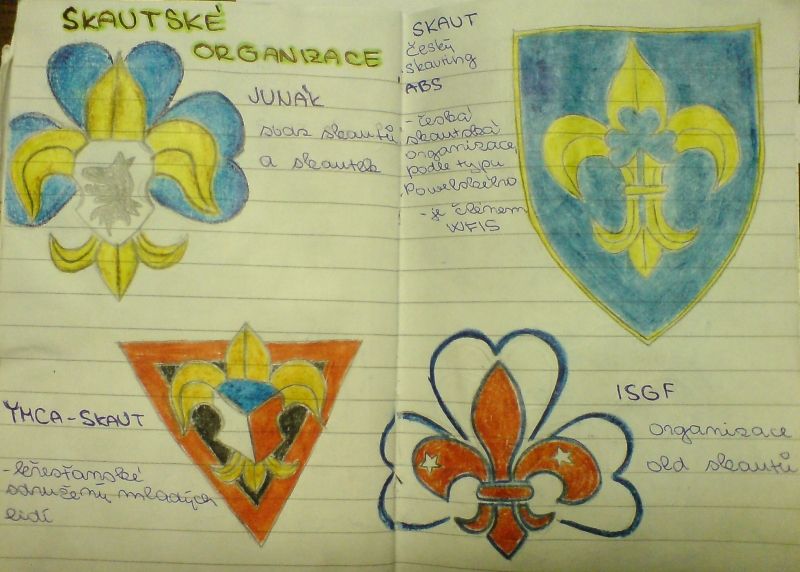 SKAUTSKÉ
ORGANIZACE
JUNÁK
svaz skautů
a skautek
SKAUT
český
skauting
ABS
- česká
skautská
organizace,
podle typu
Powelského
- je členem
WFIS
YMCA-SKAUT
- křesťanské
sdružení mladých
lidí
ISGF
organizace
old skautů